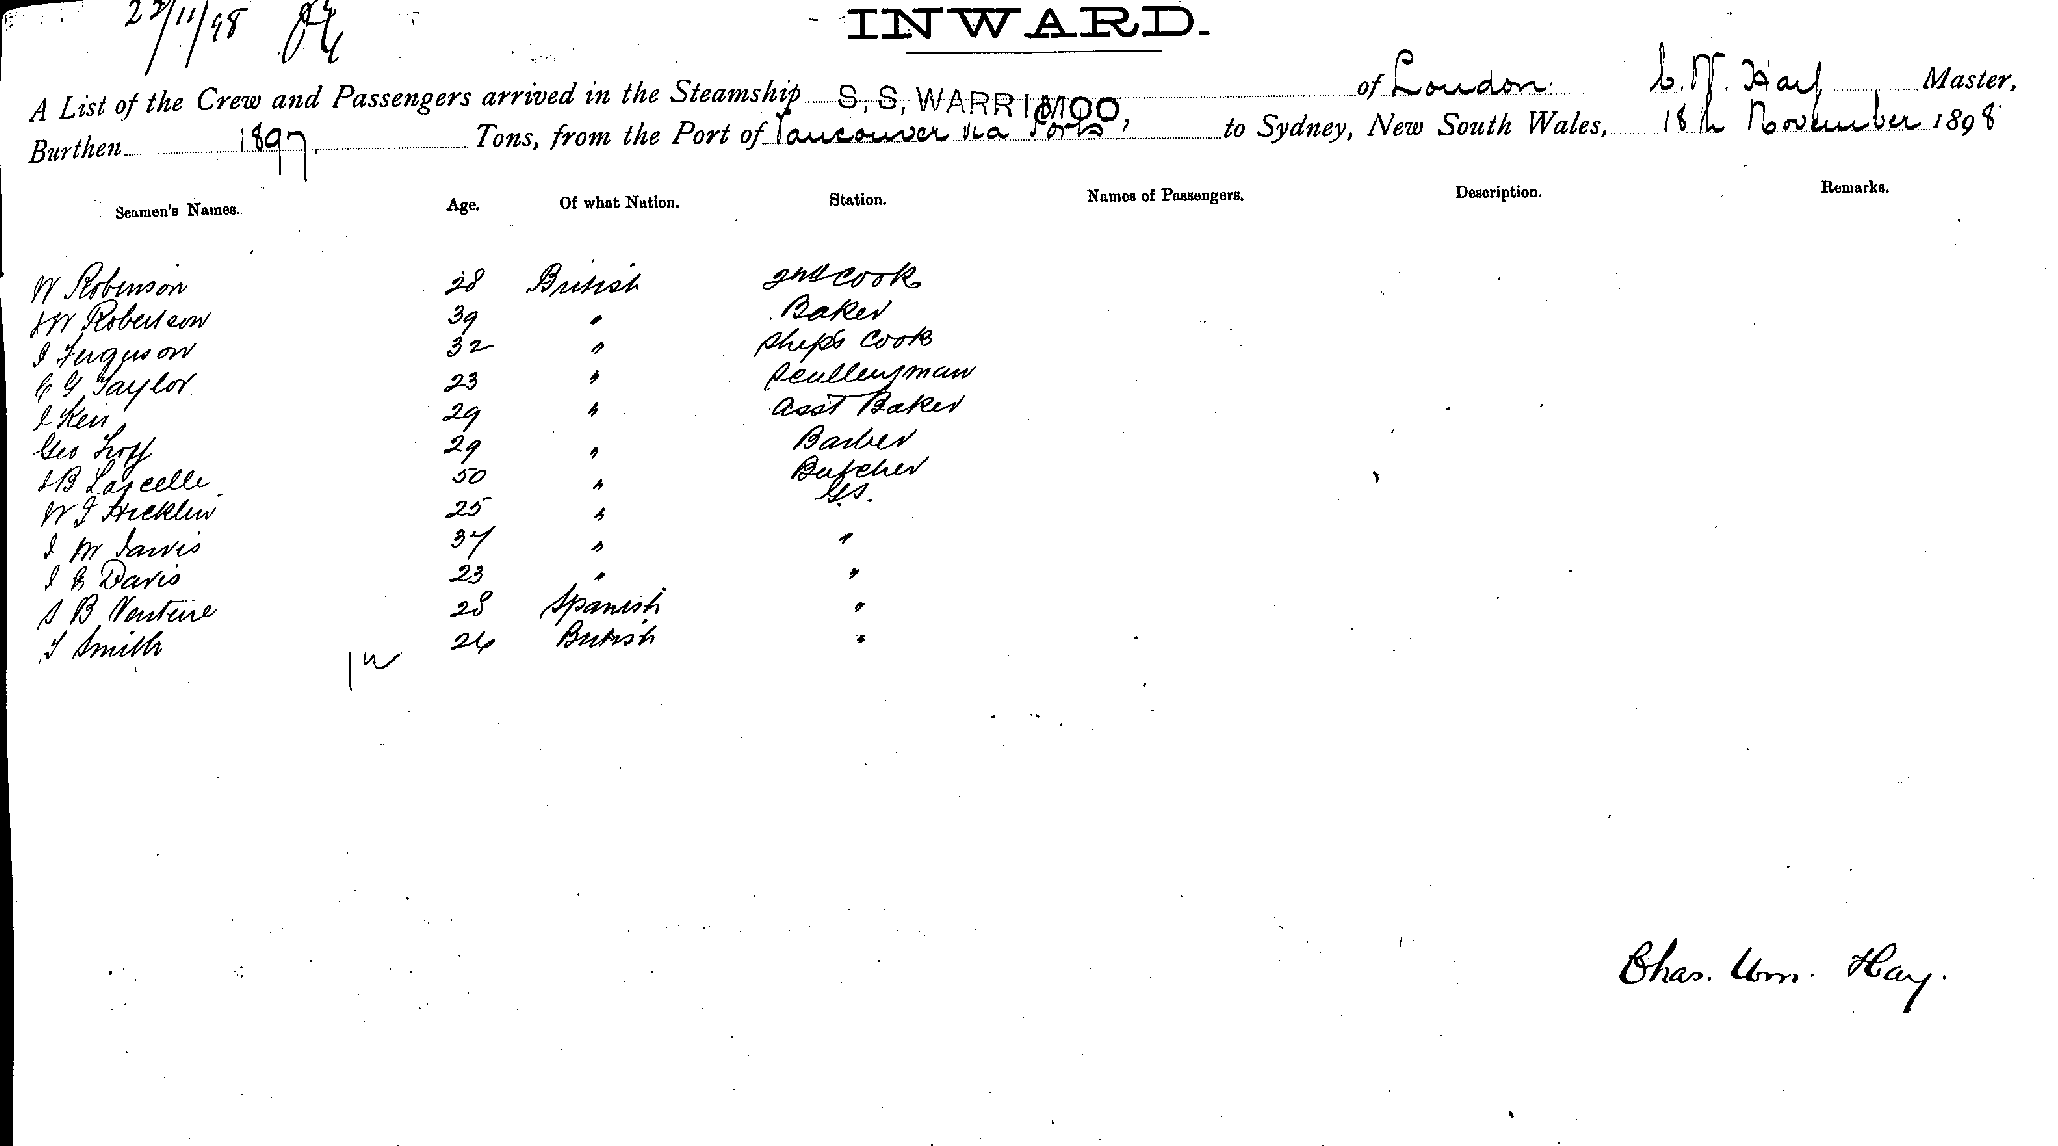 23/11/98
INWARD.
A List of the Crew and Passengers arrived in the Steamship S, S, WARRIMOO, of London C. W. Hay Master,
Burthen 1897 Tons, from the Port of Vancouver via Ports to Sydney, New South Wales, 18th November 1898
Seamen's Names. Age. Of what Nation. Station. Names of Passengers. Description. Remarks.
W Robinson 28 British 2nd Cook
J W Robertson 39 " Baker
J Ferguson 32 " Ships Cook
C G Taylor 23 " Sculleryman
J Keir 29 " Asst Baker
Geo 29 " Barber
J B Lascelle 50 " Butcher
W J 25 " G.S.
J M Jarvis 37 " "
J E Davis 23 " "
S B Venture 28 Spanish "
T Smith 24 British "
12
Chas. Wm. Hay.